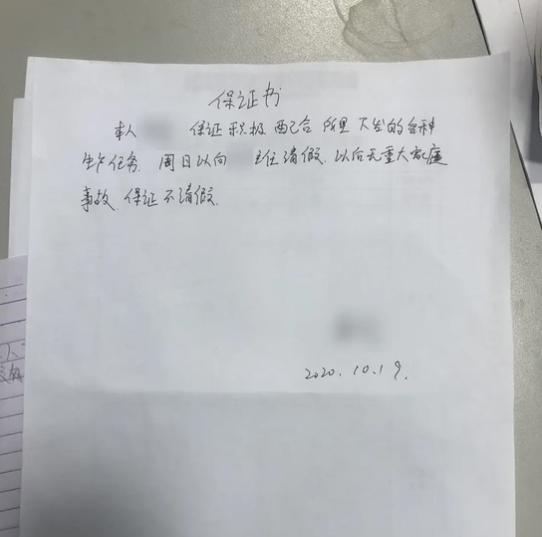 保证书
本人 保证积极配合所里下发的各种
生产任务.周日以向 主任请假.以后无重大家庭
事故.保证不请假.
2020.10.19.